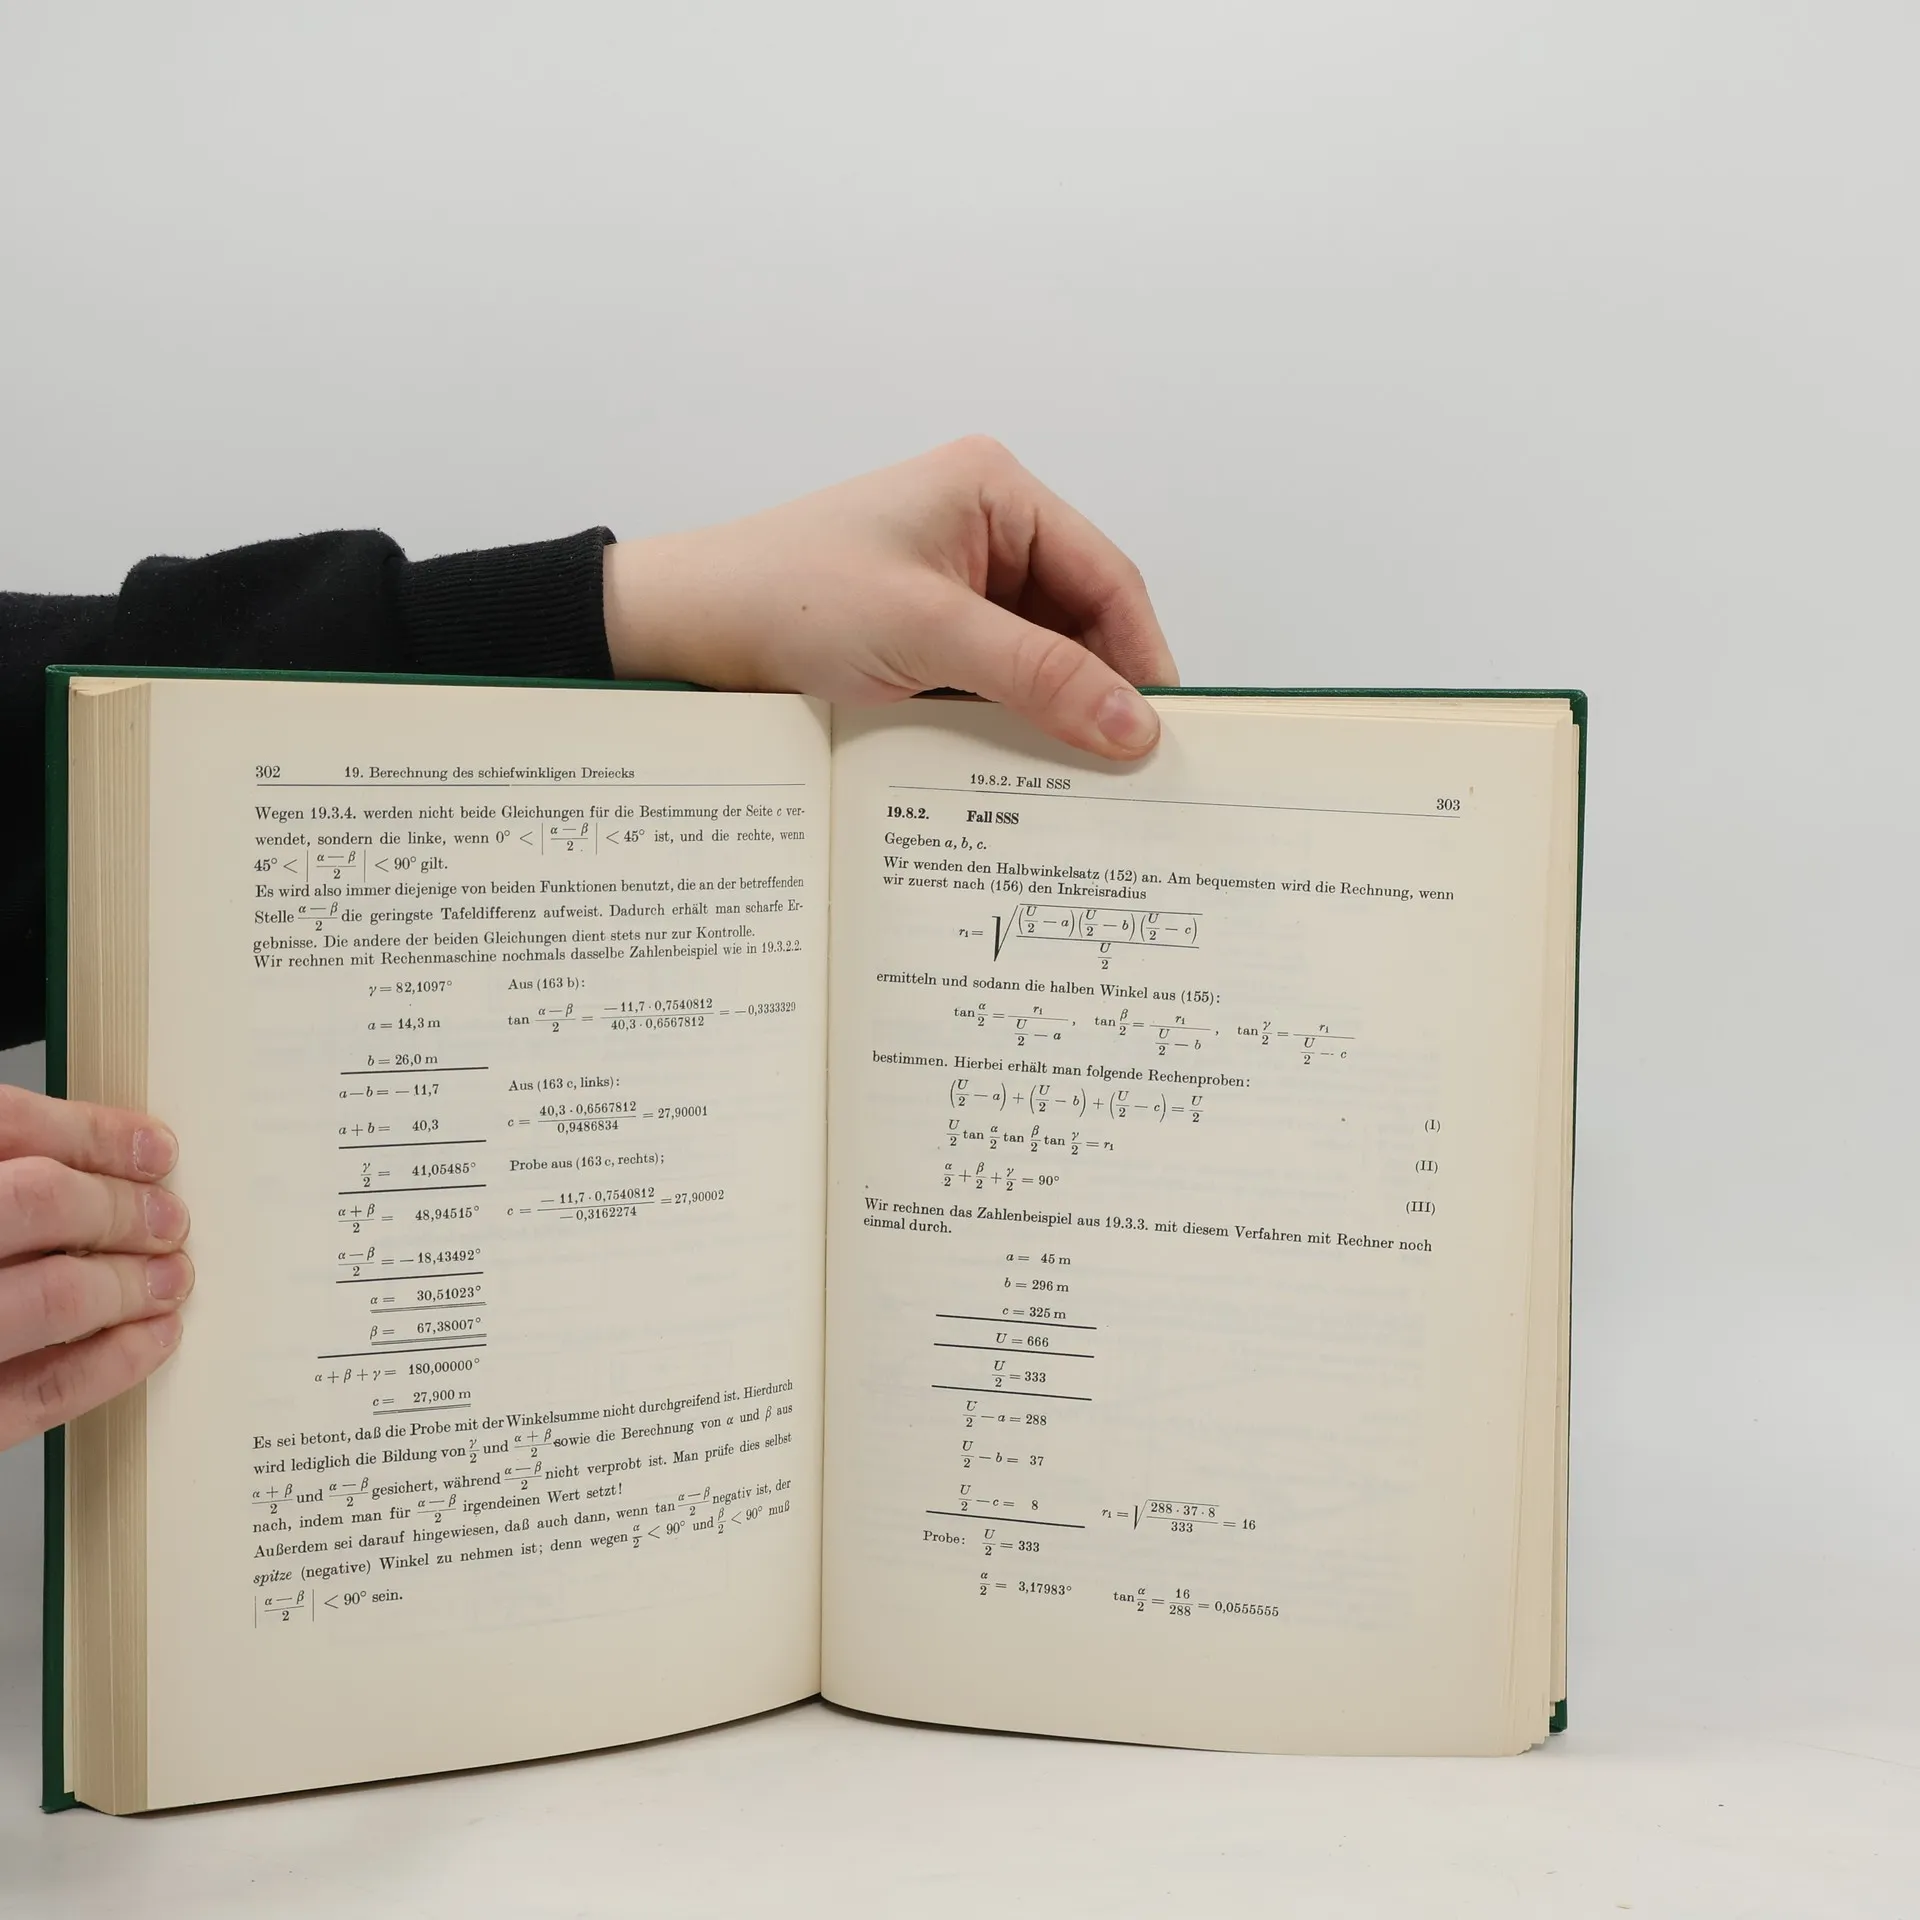 302 19. Berechnung des schiefwinkligen Dreiecks
Wegen 19.3.4. werden nicht beide Gleichungen für die Bestimmung der Seite c ver-
wendet, sondern die linke, wenn 0° < |(α — β)/2| < 45° ist, und die rechte, wenn
45° < |(α — β)/2| < 90° gilt.
Es wird also immer diejenige von beiden Funktionen benutzt, die an der betreffenden
Stelle (α — β)/2 die geringste Tafeldifferenz aufweist. Dadurch erhält man scharfe Er-
gebnisse. Die andere der beiden Gleichungen dient stets nur zur Kontrolle.
Wir rechnen mit Rechenmaschine nochmals dasselbe Zahlenbeispiel wie in 19.3.2.2.
γ = 82,1097° Aus (163 b):
a = 14,3 m tan (α — β)/2 = (—11,7 · 0,7540812)/(40,3 · 0,6567812) = —0,3333329
b = 26,0 m
a — b = — 11,7 Aus (163 c, links):
a + b = 40,3 c = (40,3 · 0,6567812)/0,9486834 = 27,90001
γ/2 = 41,05485° Probe aus (163 c, rechts);
(α + β)/2 = 48,94515° c = (— 11,7 · 0,7540812)/(—0,3162274) = 27,90002
(α — β)/2 = — 18,43492°
α = 30,51023°
β = 67,38007°
α + β + γ = 180,00000°
c = 27,900 m
Es sei betont, daß die Probe mit der Winkelsumme nicht durchgreifend ist. Hierdurch
wird lediglich die Bildung von γ/2 und (α + β)/2 sowie die Berechnung von α und β aus
(α + β)/2 und (α — β)/2 gesichert, während (α — β)/2 nicht verprobt ist. Man prüfe dies selbst
nach, indem man für (α — β)/2 irgendeinen Wert setzt!
Außerdem sei darauf hingewiesen, daß auch dann, wenn tan (α — β)/2 negativ ist, der
spitze (negative) Winkel zu nehmen ist; denn wegen α/2 < 90° und β/2 < 90° muß
|(α — β)/2| < 90° sein.
19.8.2. Fall SSS 303
19.8.2. Fall SSS
Gegeben a, b, c.
Wir wenden den Halbwinkelsatz (152) an. Am bequemsten wird die Rechnung, wenn
wir zuerst nach (156) den Inkreisradius
r₁ = √(((U/2 — a)(U/2 — b)(U/2 — c))/(U/2))
ermitteln und sodann die halben Winkel aus (155):
tan α/2 = r₁/(U/2 — a), tan β/2 = r₁/(U/2 — b), tan γ/2 = r₁/(U/2 — c)
bestimmen. Hierbei erhält man folgende Rechenproben:
(U/2 — a) + (U/2 — b) + (U/2 — c) = U/2 (I)
U/2 tan α/2 tan β/2 tan γ/2 = r₁ (II)
α/2 + β/2 + γ/2 = 90° (III)
Wir rechnen das Zahlenbeispiel aus 19.3.3. mit diesem Verfahren mit Rechner noch
einmal durch.
a = 45 m
b = 296 m
c = 325 m
U = 666
U/2 = 333
U/2 — a = 288
U/2 — b = 37
U/2 — c = 8 r₁ = √((288 · 37 · 8)/333) = 16
Probe: U/2 = 333
α/2 = 3,17983° tan α/2 = 16/288 = 0,0555555